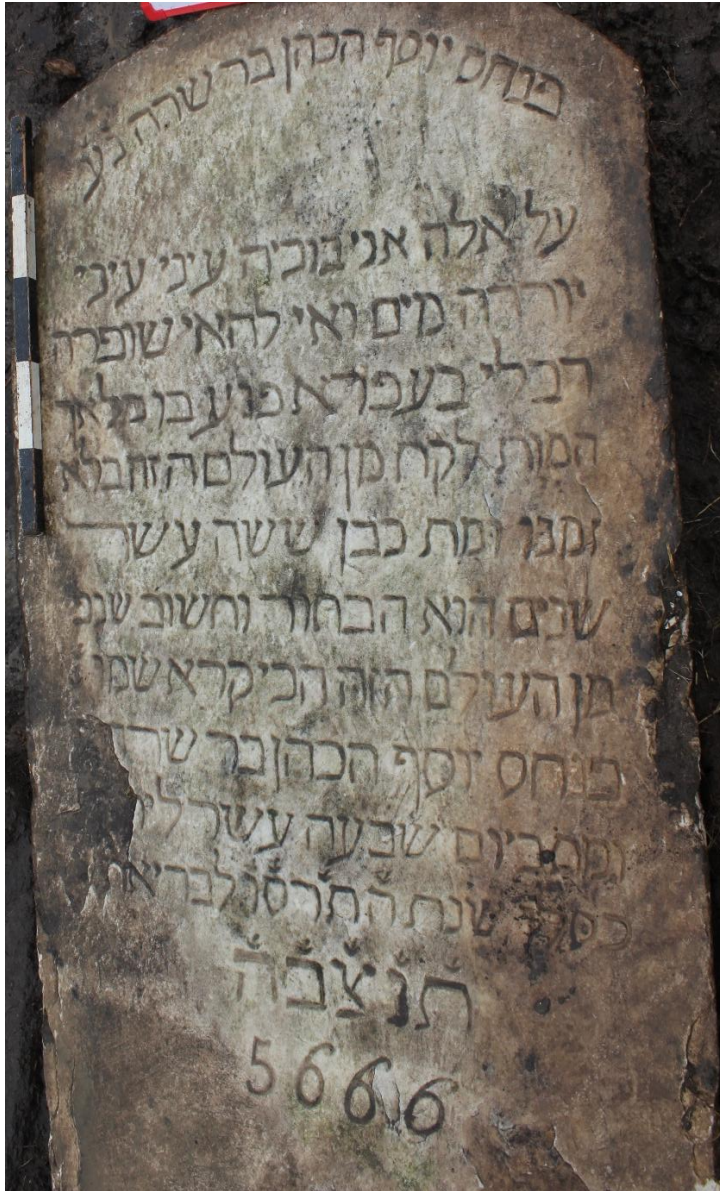 פנחס יוסף הכהן בר שרה נע
על אלה אני בוכיה עיני עיני
יורדה מים ואי להאי שופרה
דבלי בעפורא פגע בו מלאך
המות לקח מן העולם הזה בלא
זמנו ומת כבן ששה עשר
שנים הוא הבחור וחשוב
מן העולם הזה הכי קרא שמו
פנחס יוסף הכהן בר שרה
ומת ביום שבעה עשר
כסלו שנת התרסו לבריאת
תנצבה
5666